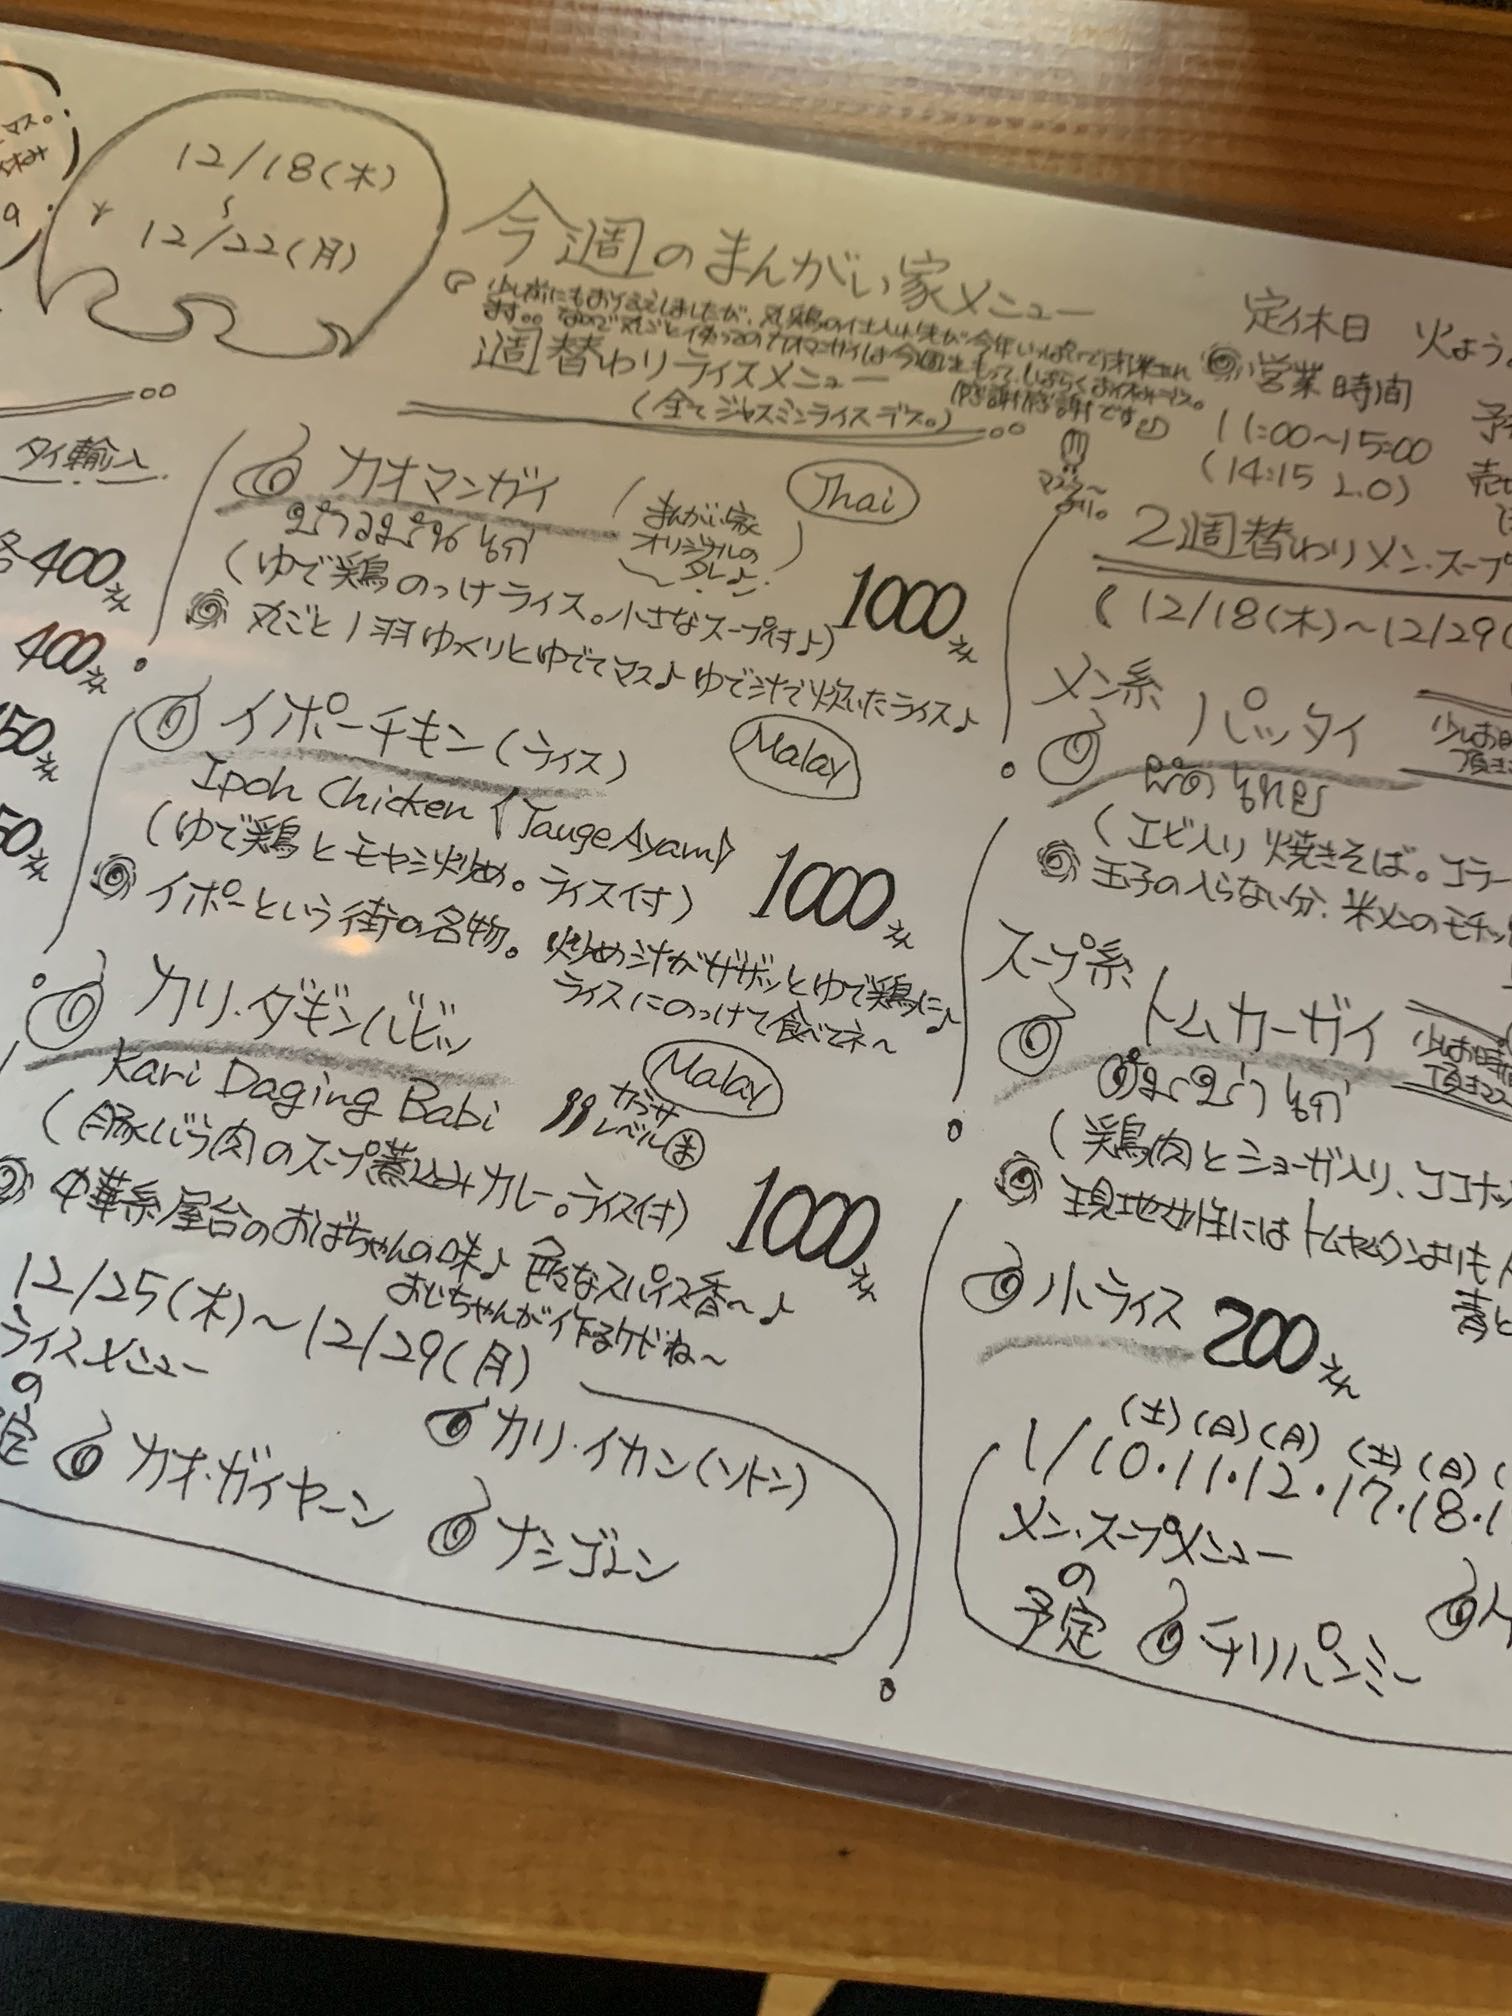 マス。
休み
12/18(木)
〜
12/22(月)
今週のまんがい家メニュー
少し前にもお伝えしましたが、丸鶏の仕入れ先が今年いっぱいで
ます。。なので丸ごと使ってのカオマンガイは今週をもって、しばらくお休みデス。
感謝感謝です
週替わりライスメニュー
(全てジャスミンライスデス。)
マスターより。
タイ輸入
各400えん
400えん
50えん
50えん
カオマンガイ
Thai
ข้าวมันไก่
(まんがい家
オリジナルの
タレ♪)
(ゆで鶏のっけライス。小さなスープ付♪)
1000えん
丸ごと1羽ゆっくりとゆでてマス♪ ゆで汁で炊いたライス♪
イポーチキン(ライス)
Malay
Ipoh Chicken (Tauge Ayam)
(ゆで鶏とモヤシ炒め。ライス付)
1000えん
イポーという街の名物。炒め汁がザザッとゆで鶏に♪
ライスにのっけて食べてネ〜
カリ・ダギンバビッ
Malay
Kari Daging Babi
カラサ
レベル
(豚バラ肉のスープ煮込みカレー。ライス付)
1000えん
中華系屋台のおばちゃんの味♪ 色々なスパイス香〜♪
おじちゃんが作るケドね〜
12/25(木)〜12/29(月)
ライスメニュー
の
定
カオ・ガイヤーン
カリ・イカン(ソトン)
ナシゴレン
定休日 火よう
営業時間
11:00〜15:00
(14:15 L.O)
2週替わりメン・スープ
(12/18(木)〜12/29(
メン系
パッタイ
少しお時
頂きま
ผัดไทย
(エビ入り焼きそば。コラー
玉子の入らない分、米メンのモチッ
スープ系
トムカーガイ
少しお時
頂きマス
ต้มข่าไก่
(鶏肉とショーガ入り、ココナッ
現地女性にはトムヤムクンよりも人
青と
小ライス 200えん
(土)(日)(月) (土)(日)(
1/10・11・12・17・18・1
メン・スープメニュー
の
予定
チリパンミー